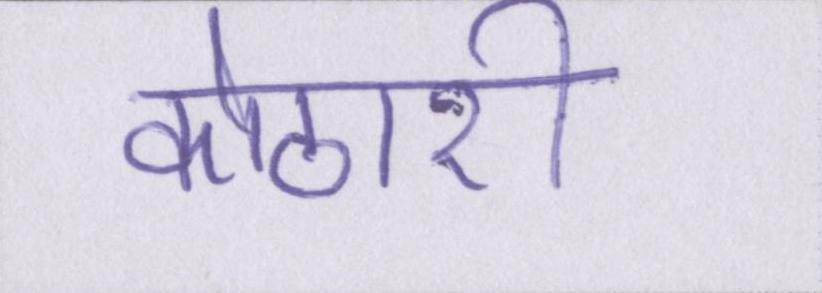 कोठारी